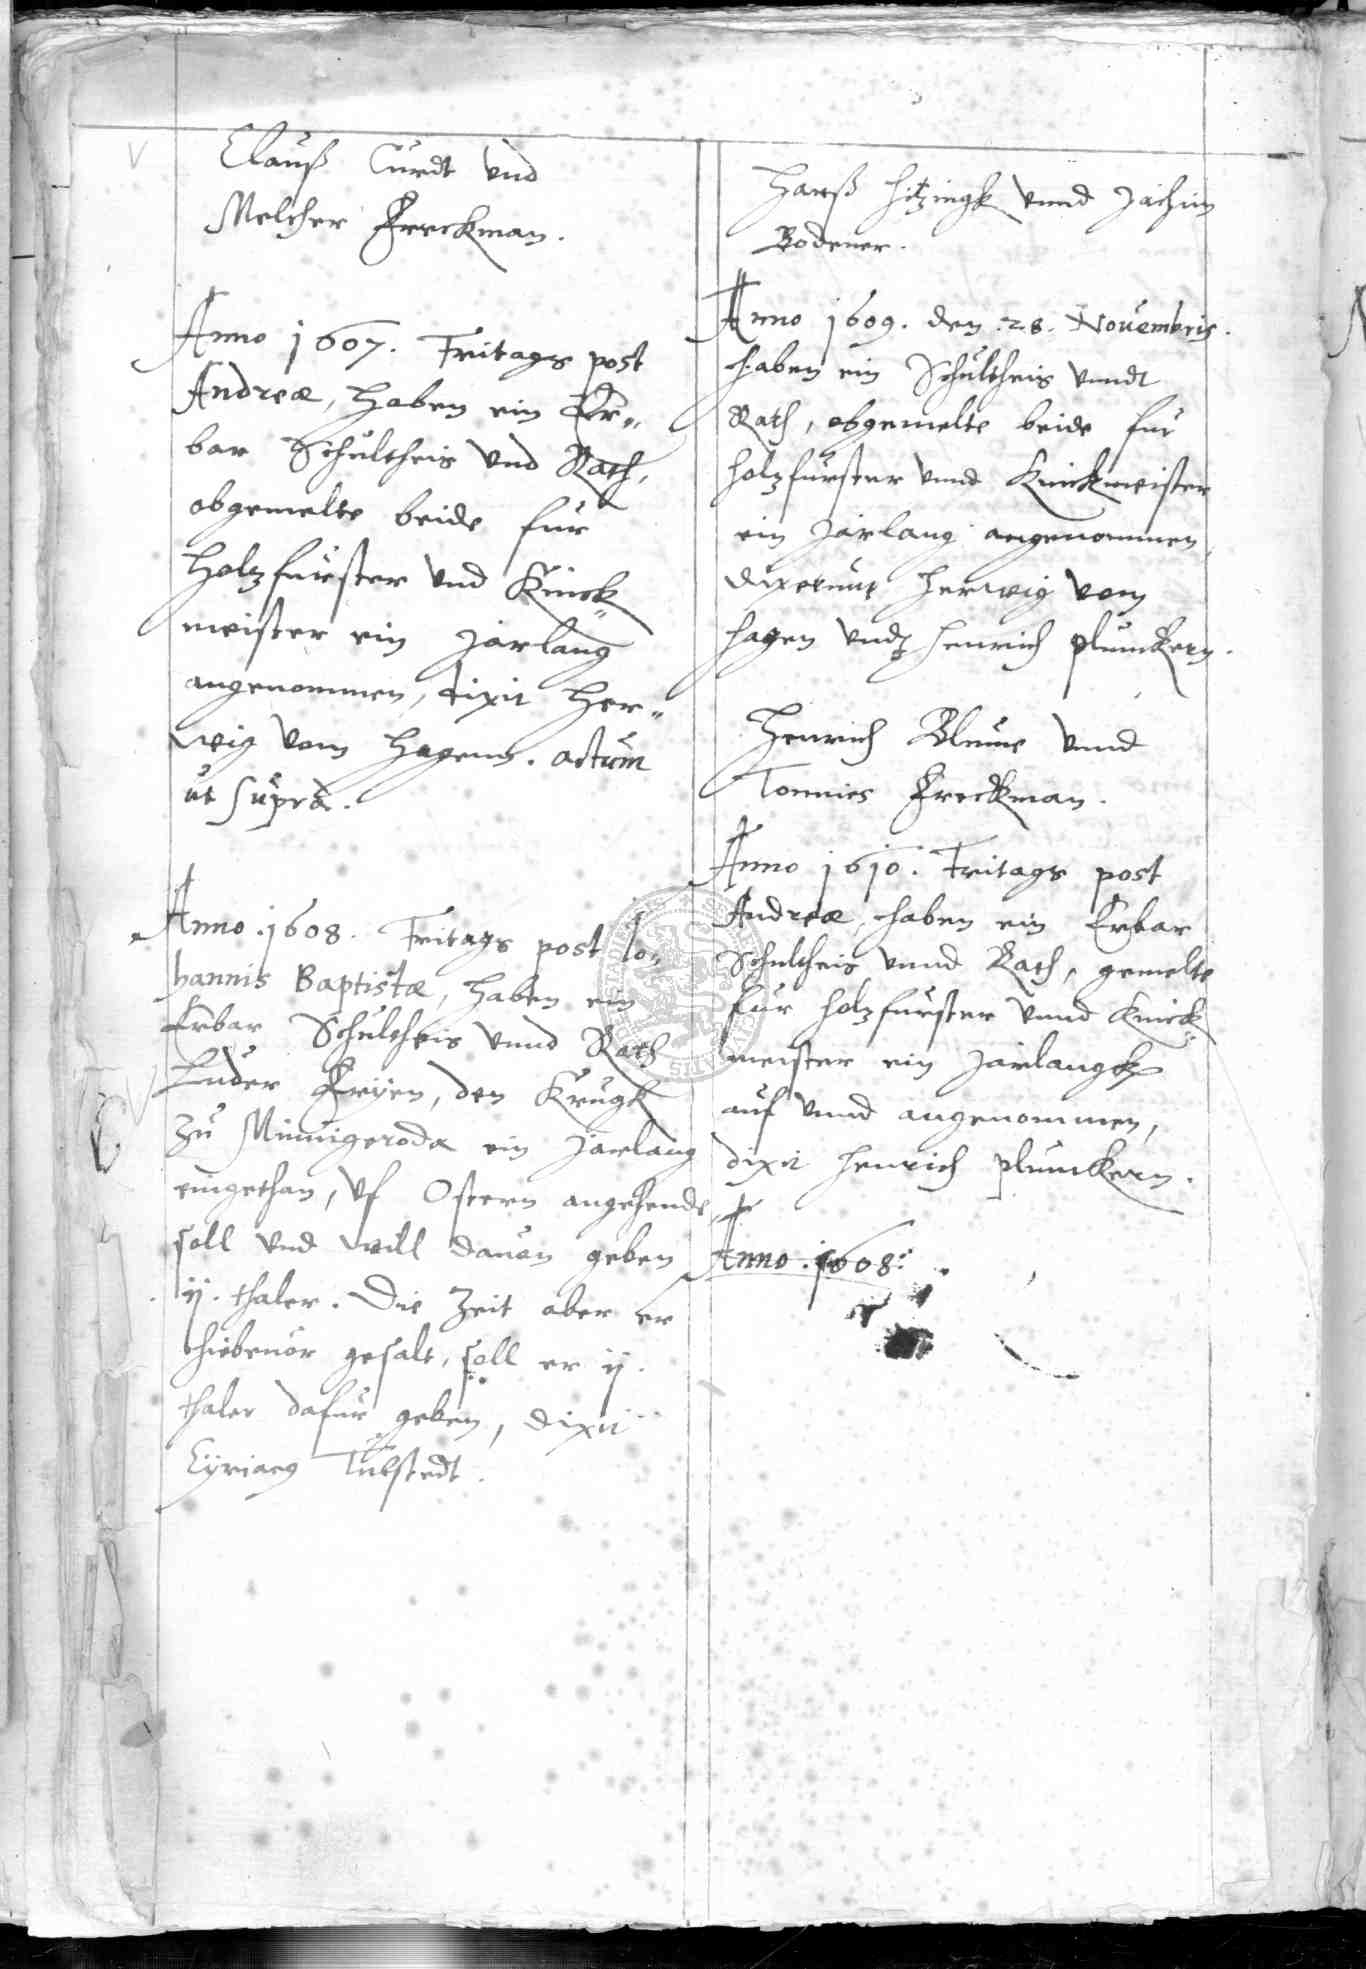 Clauß Curdt vnd
Melcher Freckman.
Anno 1607. Fritags post
Andreæ, haben ein Er„
bar Schultheis vnd Rath,
obgemelte beide fur
Holzfürster vnd Knick„
meister ein jarlang
angenommen, dixit Her„
wig vom Hagenn. actum
ut supra.
Anno .1608. Fritags post Io„
hannis Baptistæ, haben ein
Erbar Schultheis vnnd Rath
Luder Freyen, den Krugk
zu Minnigeroda ein jarlang
eingethan, vf Ostern angehende
soll vnd will dauon geben
ij. thaler. Die Zeit aber er
hiebeuor gesalt, soll er ij.
thaler dafur geben, dixit
Cyriacg Tulstedt.
Hanß Hitzingk vnnd Jachim
Bodener.
Anno 1609. den .28. Nouembris.
haben ein Schultheis vnndt
Rath, obgemelte beide fur
holzfürster vnnd Knickmeister
ein Jarlang angenommen,
dixerunt Herwig vom
Hagen vndt Henrich plunckern.
Henrich Blume vnnd
Tonnies Freckman.
Anno 1610. Fritags post
Andreæ, haben ein Erbar
Schultheis vnnd Rath, gemelte
fur holzfurster vnnd Knick„
meister ein jarlangk
auf vnnd angenommen,
dixit Henrich plunckern.
Anno .1608.